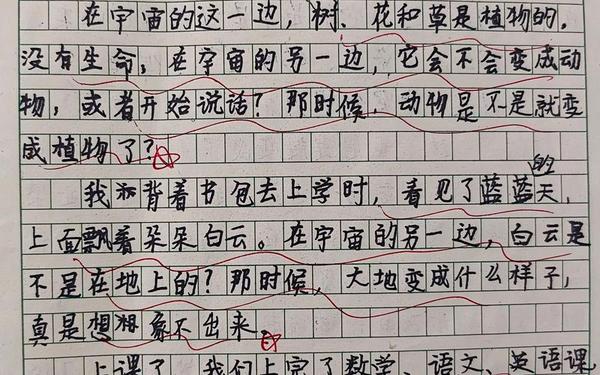 在宇宙的这一边，树、花和草是植物的，
没有生命，在宇宙的另一边，它会不会变成动
物，或者开始说话？那时候，动物是不是就变
成植物了？
我背着书包去上学时，看见了蓝蓝的天，
上面飘着朵朵白云。在宇宙的另一边，白云是
不是在地上的？那时候，大地变成什么样子，
真是想象不出来。
上课了，我们上完了数学、语文、英语课